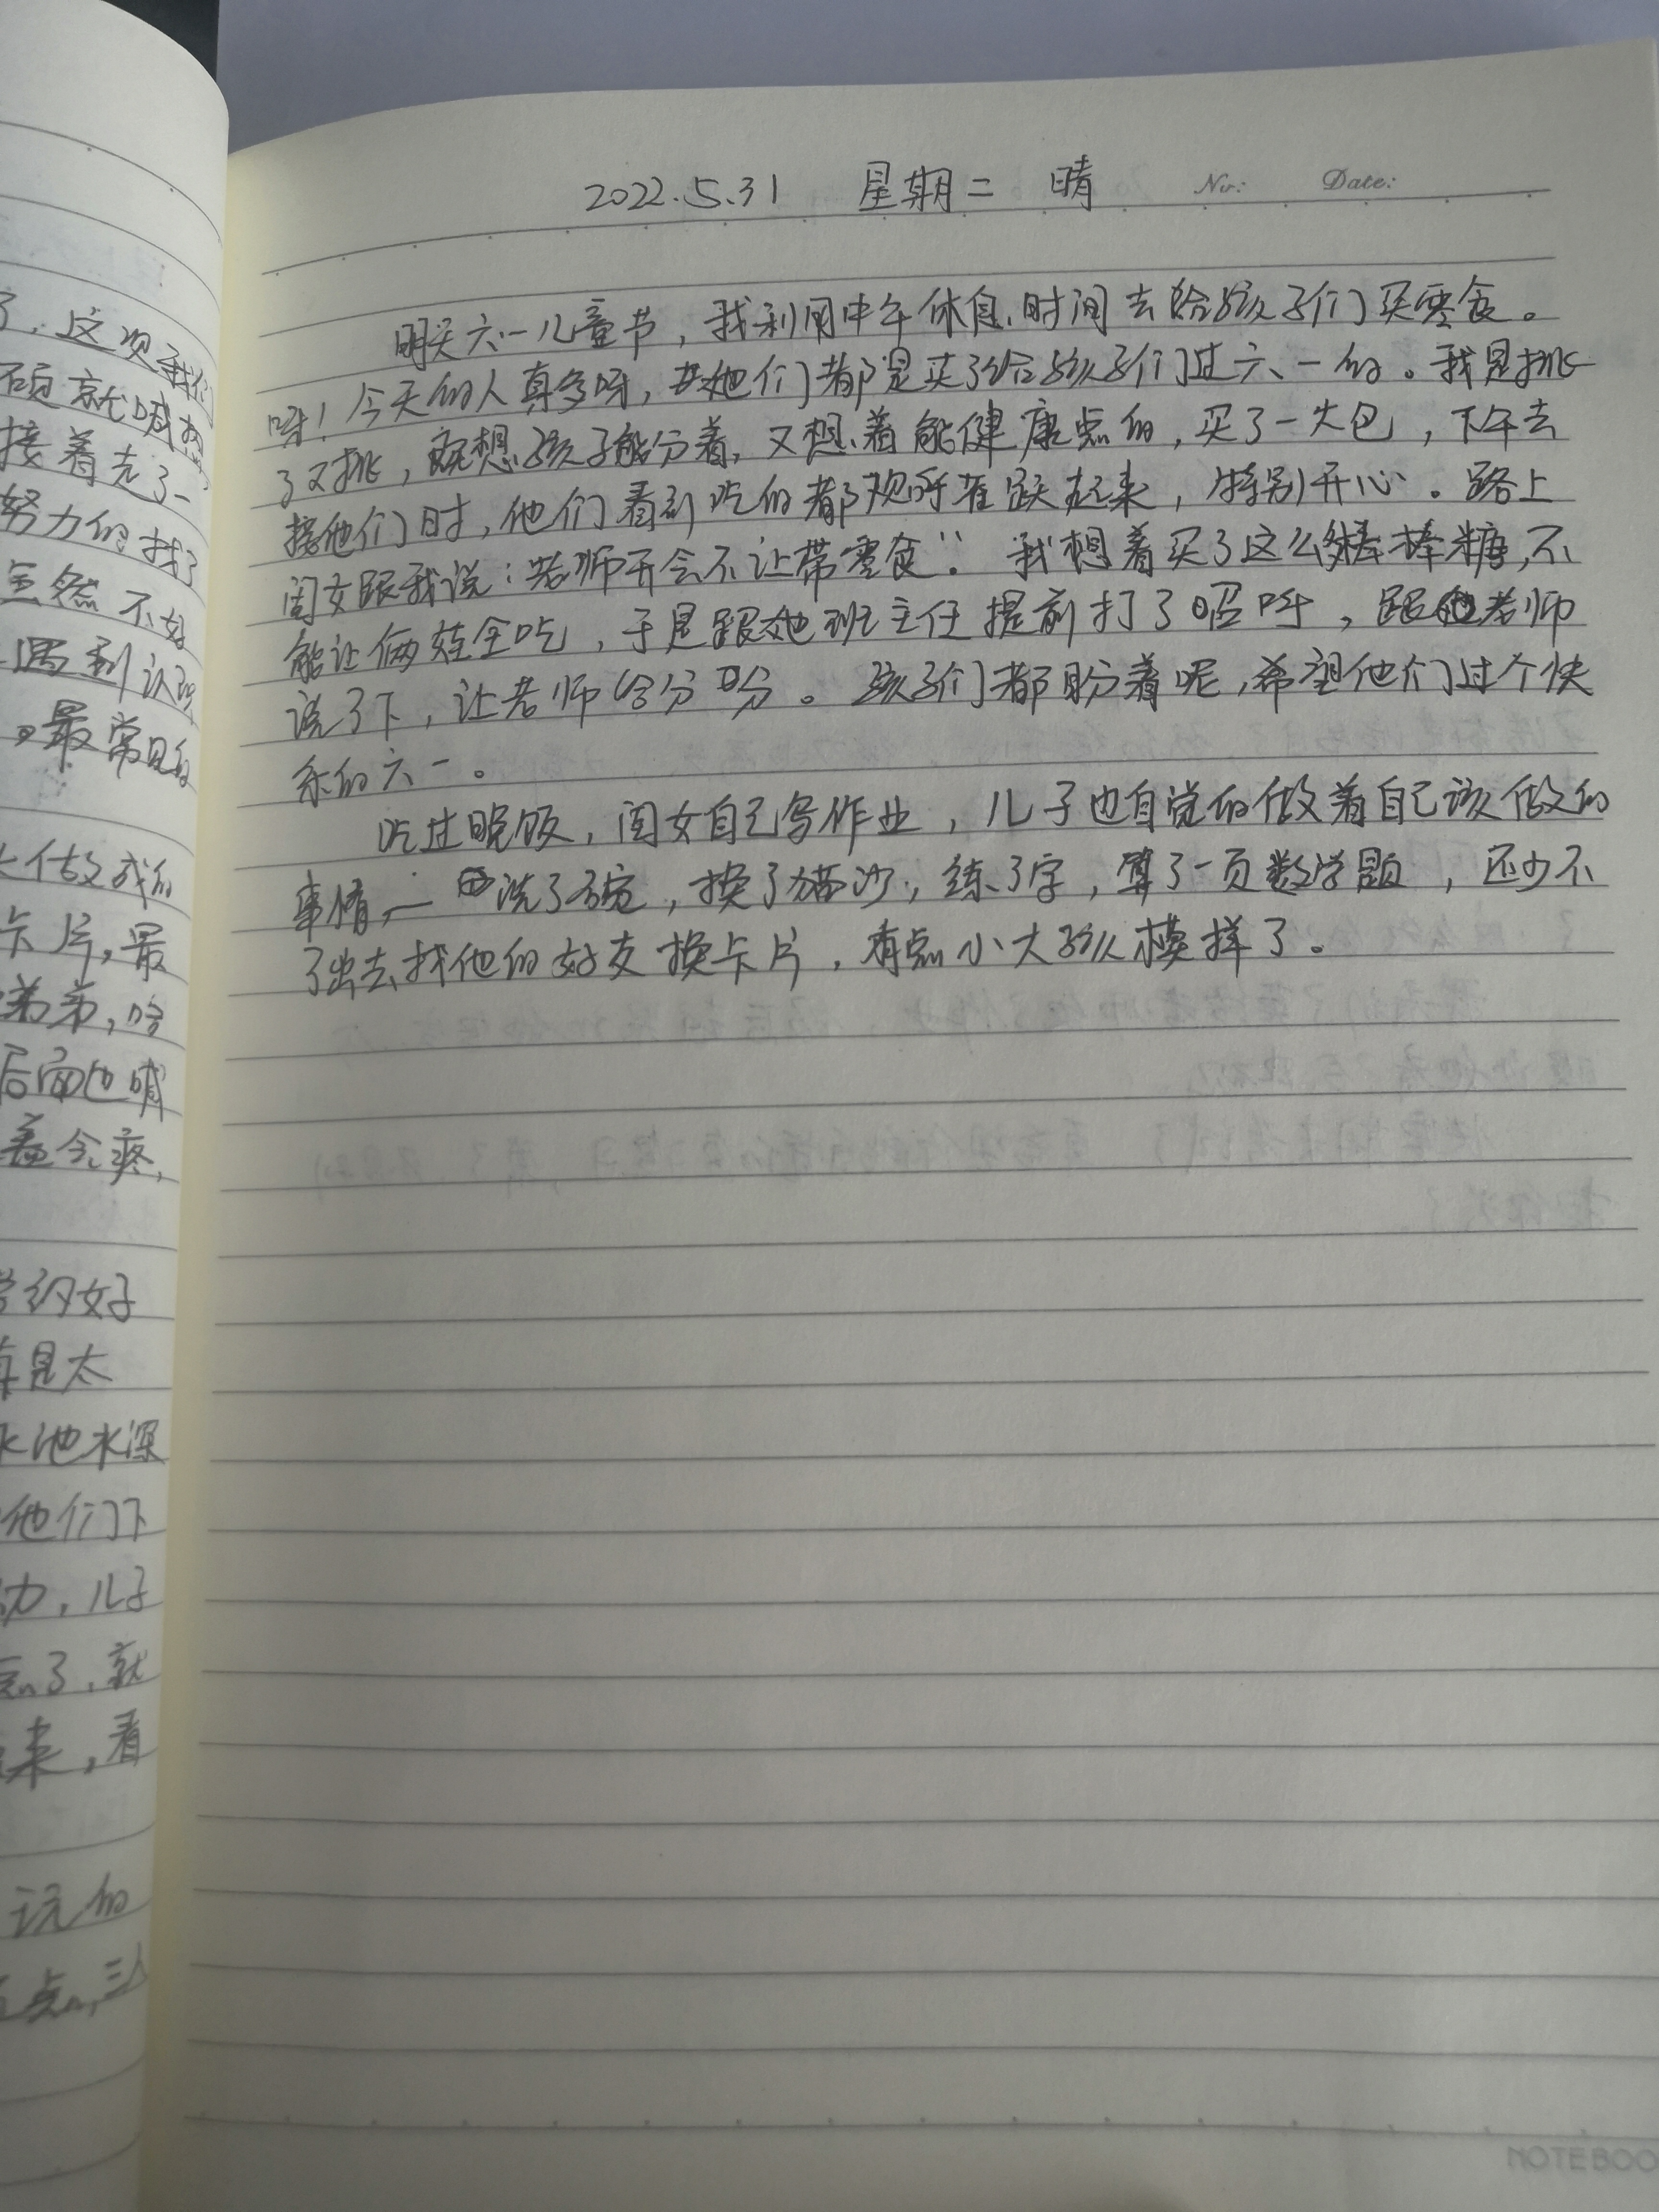 2022.5.31 星期二 晴 No: Date:
明天六一儿童节，我利用中午休息时间去给孩子们买零食。
呀！今天的人真多呀，她们都是买了给孩子们过六一的。我是挑
了又挑，既想孩子能分着，又想着能健康点的，买了一大包，下午去
接他们时，他们看到吃的都欢呼雀跃起来，特别开心。路上
闺女跟我说：老师开会不让带零食"。我想着买了这么棒棒糖，不
能让俩娃全吃，于是跟她班主任提前打了招呼，跟她老师
说了下，让老师给分一分。孩子们都盼着呢，希望他们过个快
乐的六一。
吃过晚饭，闺女自己写作业，儿子也自觉的做着自己该做的
事情，洗了碗，换了猫沙，练了字，算了一页数学题，还少不
了出去找他的好友换卡片，有点小大孩模样了。
了，这次我们
接着走了一
努力的找了
虽然不好
遇到认识
最常见的
卡片，最
弟弟，哈
后面也喊
着会疼，
约好
真是太
水池水深
他们下
力，儿子
点了，就
来，看
玩的
点，三
NOTEBOO